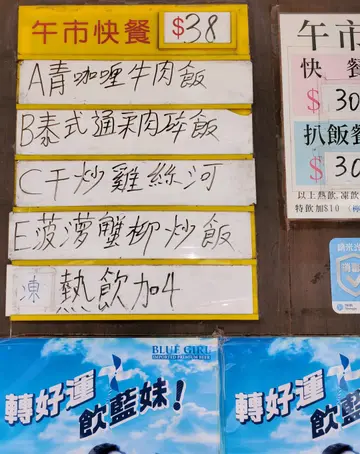 午市快餐 $38
A青咖喱牛肉飯
B泰式通菜肉碎飯
C干炒雞絲河
E菠蘿蟹柳炒飯
凍 熱飲加4
午市
快餐
$30
扒飯餐
$30
以上熱飲,凍飲
特飲加$10
BLUE GIRL
IMPORTED PREMIUM BEER
轉好運
飲藍妹!
BLUE GIRL
IMPORTED PREMIUM BEER
轉好運
飲藍